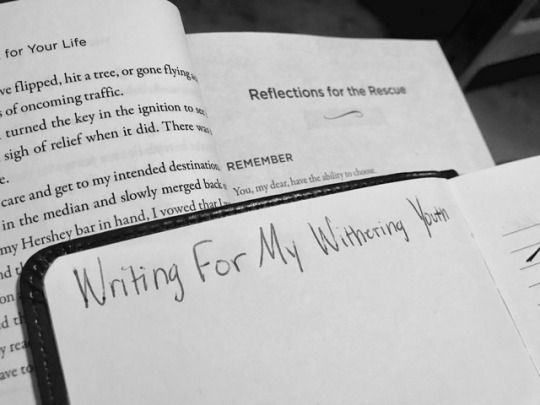 for Your Life
ve flipped, hit a tree, or gone flying
s of oncoming traffic.
turned the key in the ignition to see
sigh of relief when it did. There was
e.
care and get to my intended destination,
in the median and slowly merged back
my Hershey bar in hand, I vowed that I
nd th
on
d th
y rea
ave to
Reflections for the Rescue
REMEMBER
You, my dear, have the ability to choose.
Writing For My Withering Youth